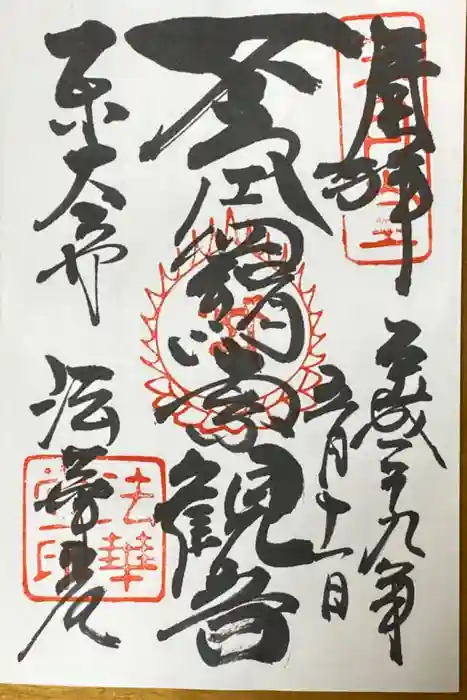 奉拝
平成二十九年
五月十一日
不空羂索観音
東大寺
法華堂
法華堂印